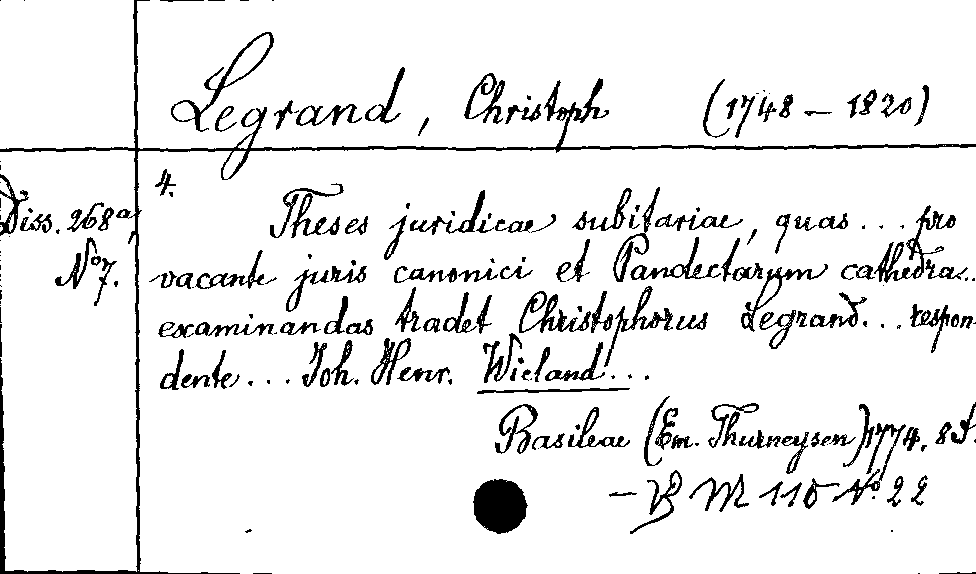 Legrand, Christoph (1748 – 1820)
4.
Diss. 268a,
No 7.
Theses juridicae subitariae, quas ... pro
vacante juris canonici et Pandectarum cathedra...
examinandas tradet Christophorus Legrand... respon-
dente ... Joh. Henr. Wieland...
Basileae (Em. Thurneysen) 1774. 8 S.
– VB M 110 No 22